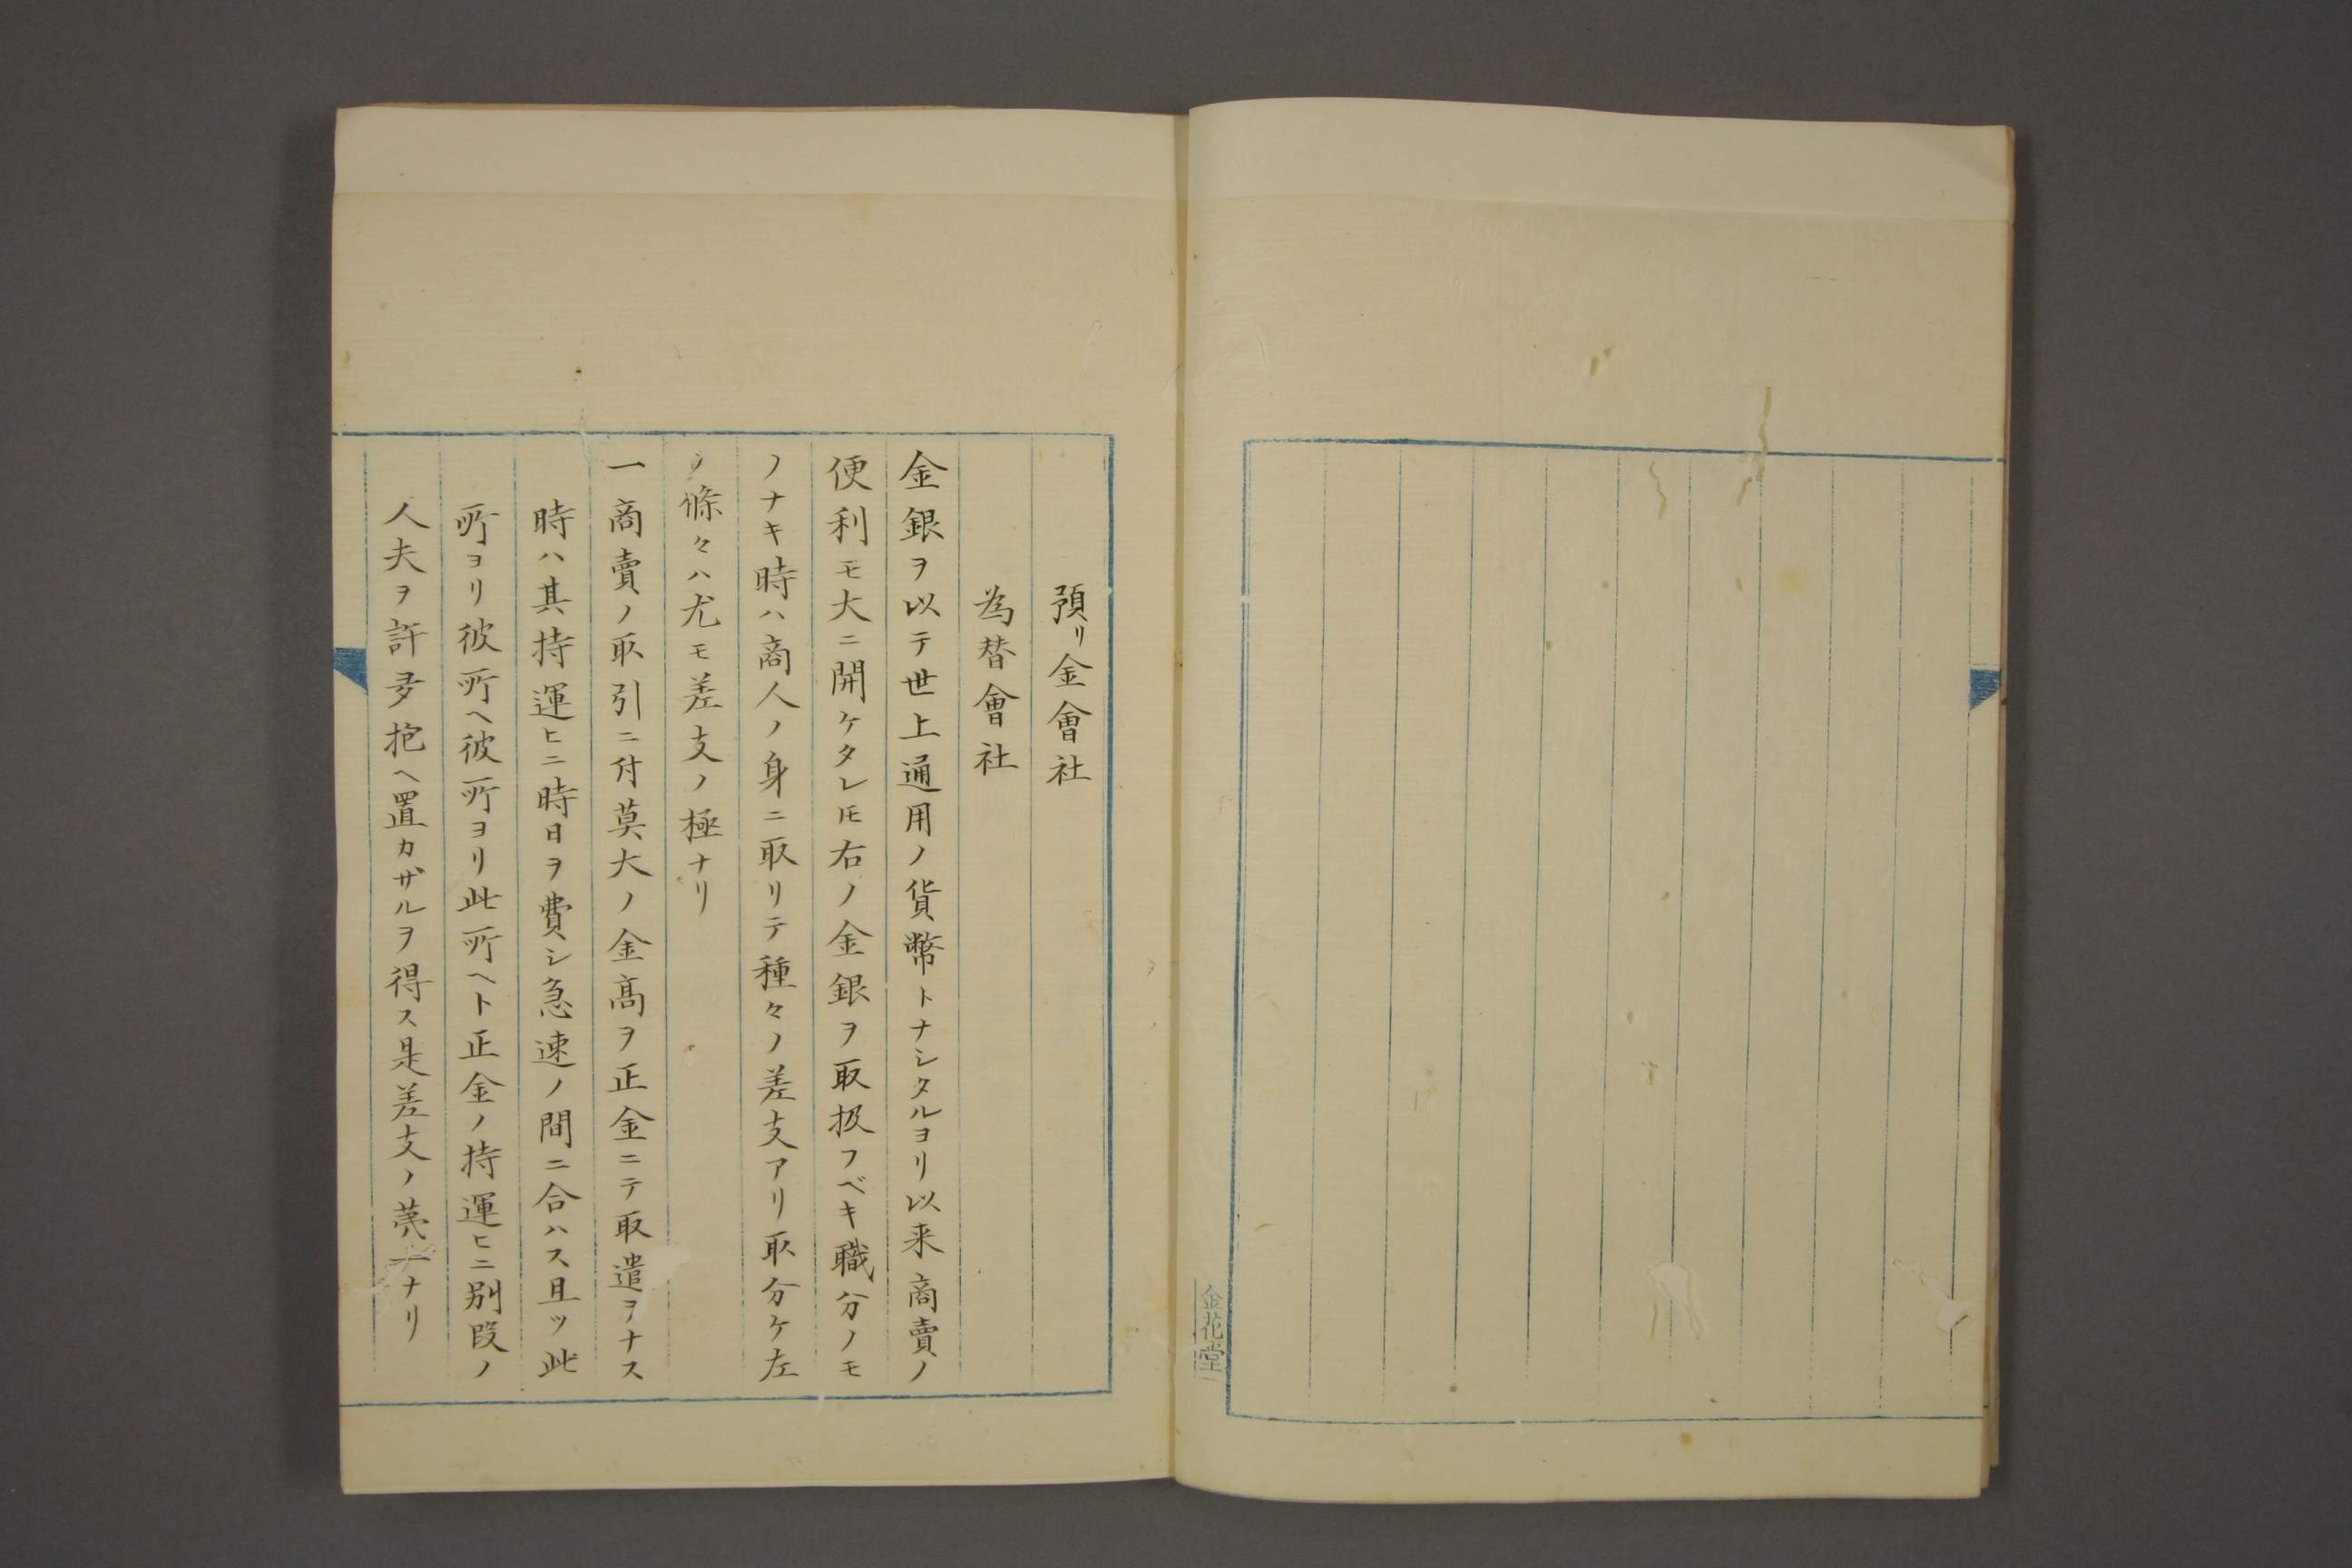 預リ金會社
為替會社
金銀ヲ以テ世上通用ノ貨幣トナシタルヨリ以来商賣ノ
便利モ大ニ開ケタレ𪜈右ノ金銀ヲ取扱フベキ職分ノモ
ノナキ時ハ商人ノ身ニ取リテ種々ノ差支アリ取分ケ左
ノ條々ハ尤モ差支ノ極ナリ
一商賣ノ取引ニ付莫大ノ金高ヲ正金ニテ取遣ヲナス
時ハ其持運ヒニ時日ヲ費シ急速ノ間ニ合ハス且ツ此
所ヨリ彼所ヘ彼所ヨリ此所ヘト正金ノ持運ヒニ別段ノ
人夫ヲ許多抱ヘ置カザルヲ得ス是差支ノ第一ナリ
金花堂